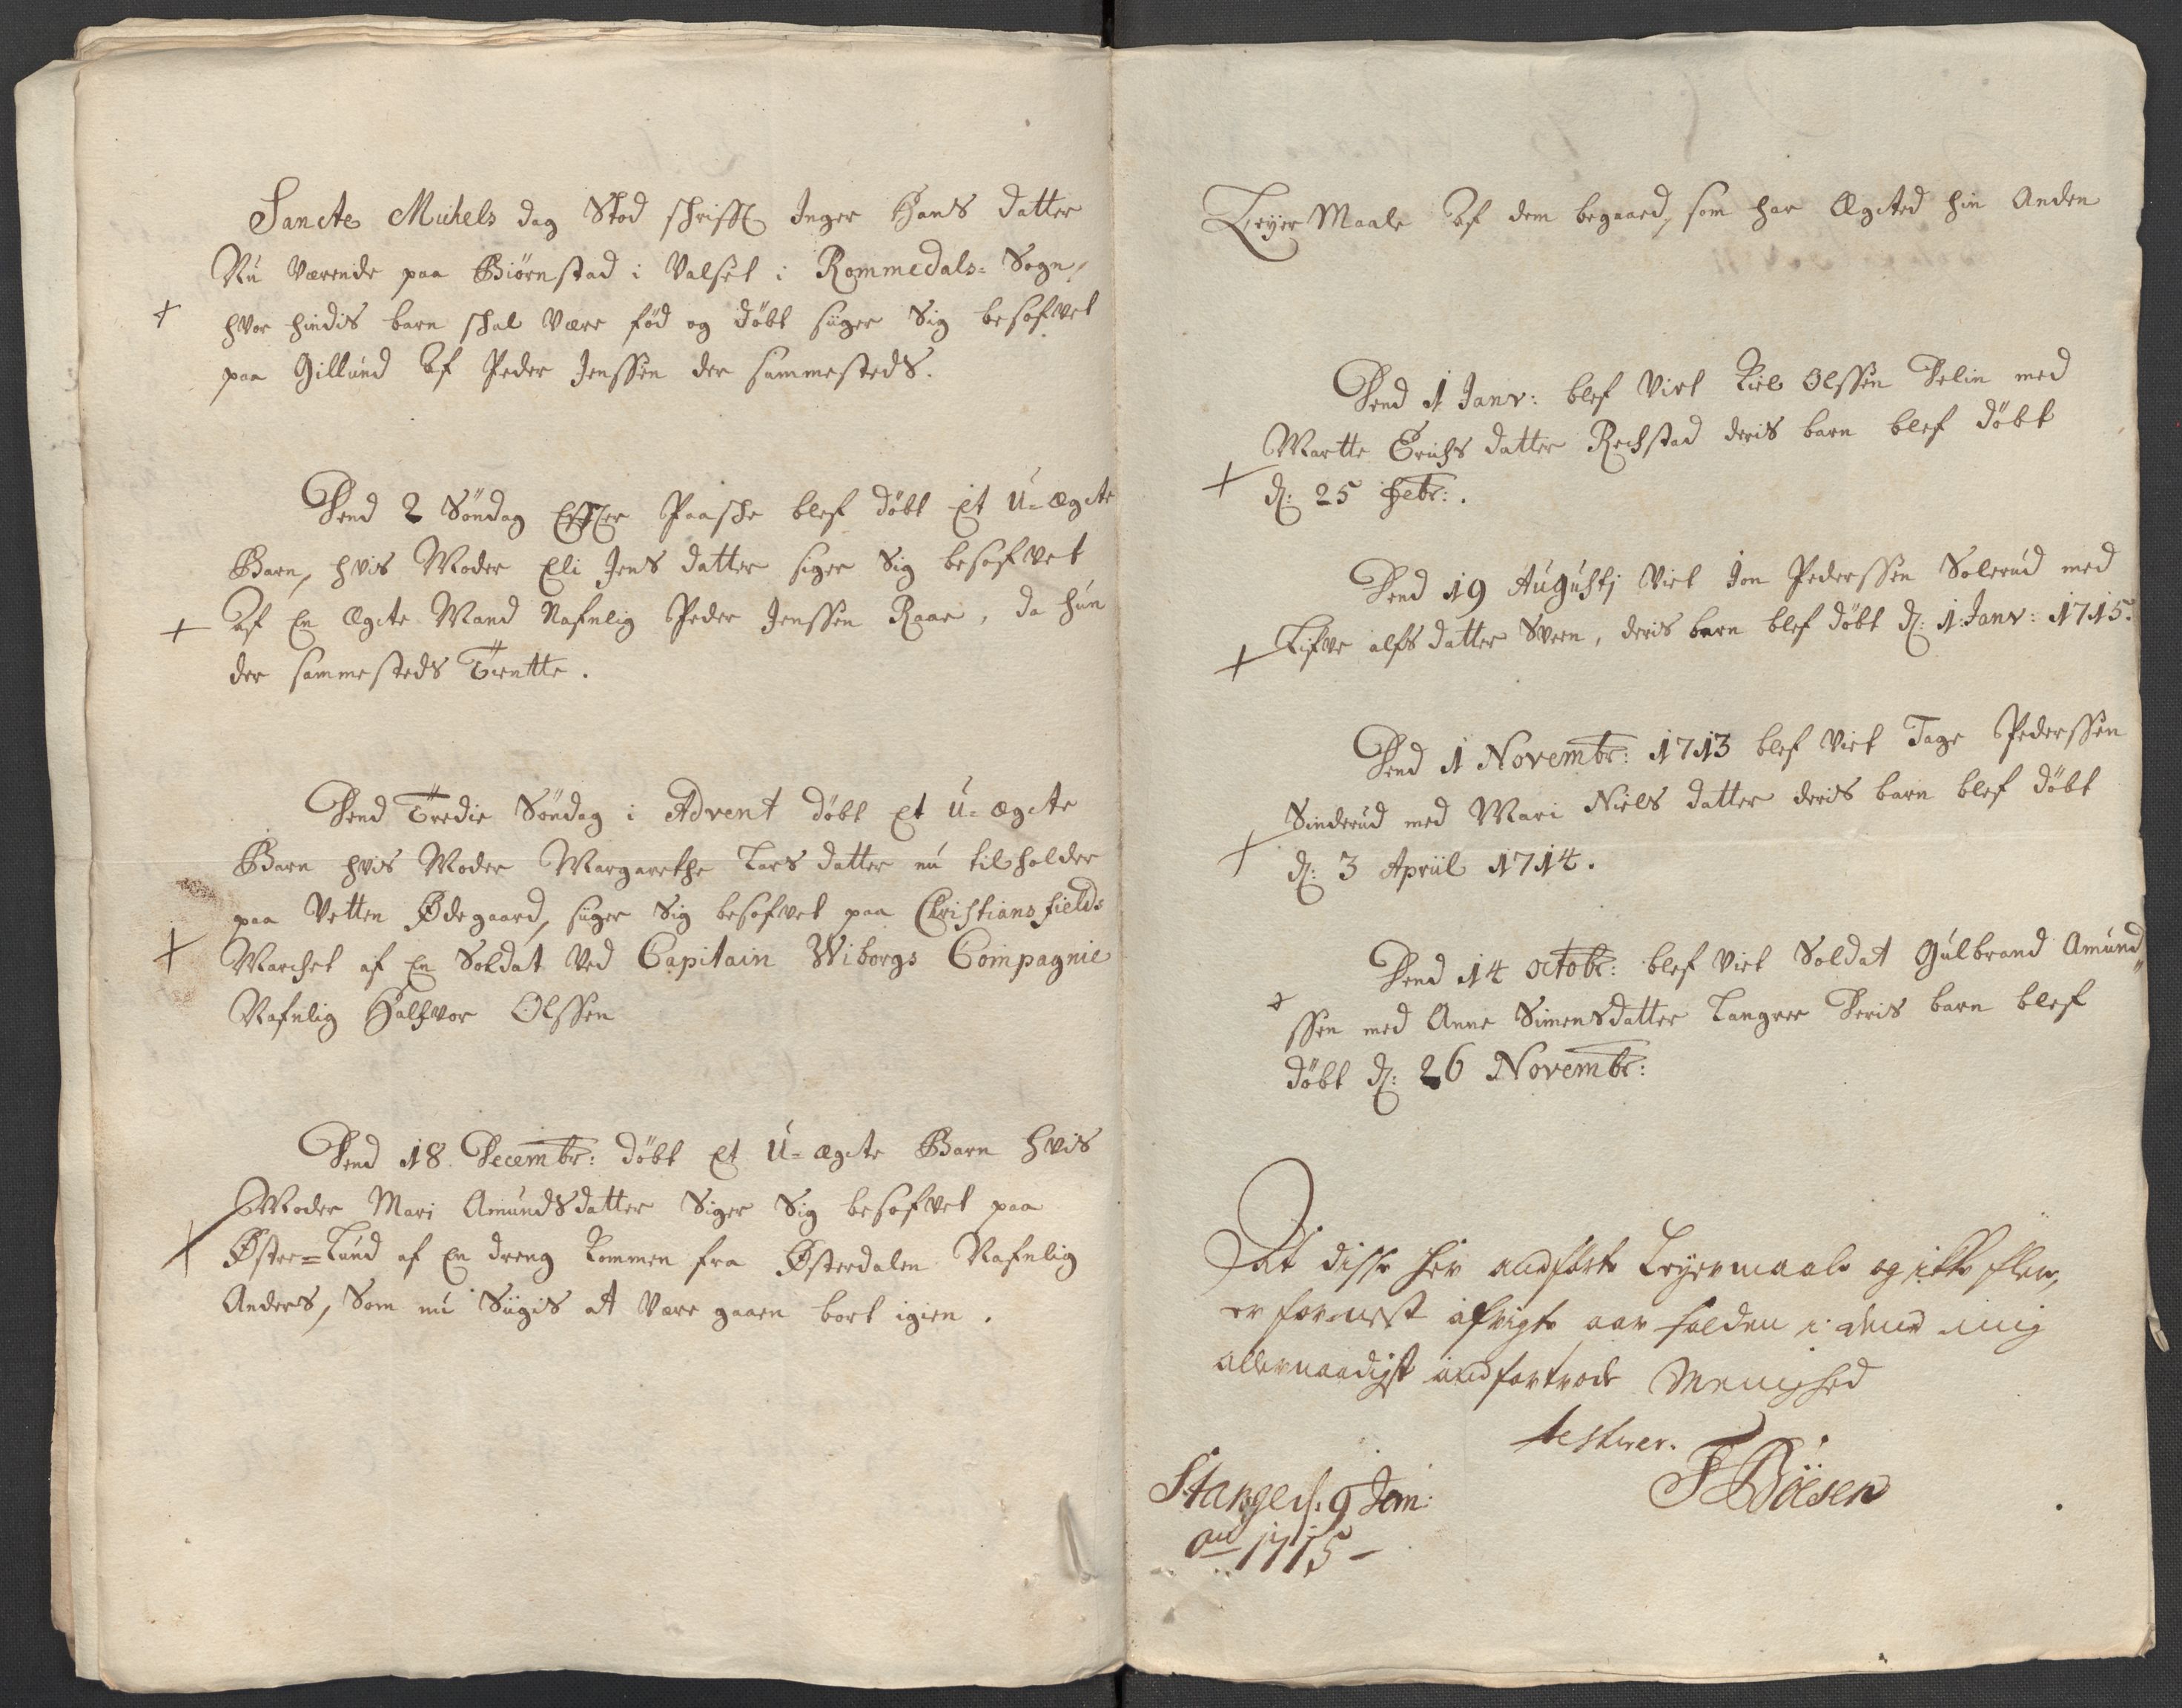 Sancte Michels dag Stod schrifft Inger Hans datter
Nu Værende paa Biørnstad i Valset i Rommedals= Sogn,
+ hvor hindis barn schal være fød og døbt siiger Sig besofvet
paa Gillund Af Peder Jenssen der sammesteds.
Dend 2 Søndag Effter Paasche blef døbt Et U=ægte
Barn, hvis Moder Eli Jens datter siger Sig besofvet
+ Af En Ægte Mand Nafnlig Peder Jenssen Raae, da hun
der sammesteds Tientte.
Dend Tredie Søndag i Advent døbt Et U=ægte
Barn hvis Moder Margarethe Lars datter nu tilholder
paa Vetten Ødegaard, siiger Sig besofvet paa Christiansfields
+ Marchet af En Soldat Ved Capitain Wiborgs Compagnie
Nafnlig Halfvor Olssen
Dend 18. Decembr: døbt Et U=ægte Barn hvis
Moder Mari Amundsdatter Siger Sig besofvet paa
+ Øster=Lund af En dreng kommen fra Østerdalen Nafnlig
Anders, Som nu Siigis at Være gaaen bort igien.
Leyer Maale Af dem begaaed, som har Ægted hin Anden
Dend 1 Janv: blef Viet Kiel Olssen Delin med
Martte Erichs datter Rechstad deris barn blef døbt
+ d: 25 Febr:.
Dend 19 Augustj Viet Jon Pederssen Solerud med
+ Lisve alfs datter Sveen, deris barn blef døbt d: 1. Janv: 1715.
Dend 1 Novembr: 1713 blef Viet Tage Pederssen
Sinderud med Mari Niels datter deris barn blef døbt
+ d: 3 Apriil 1714.
Dend 14 octobr: blef Viet Soldat Gulbrand Amund„
+ ssen med Anne Simensdatter Langree Deris barn blef
døbt d: 26 Novembr:
At disse her andførte Leyermaale og icke flere,
er fornest afvigte aar falden i dend mig
allernaadigst andfortrode Menighed
testerer.
Stange d. 9 Jan:
FBöesen
an 1715 –